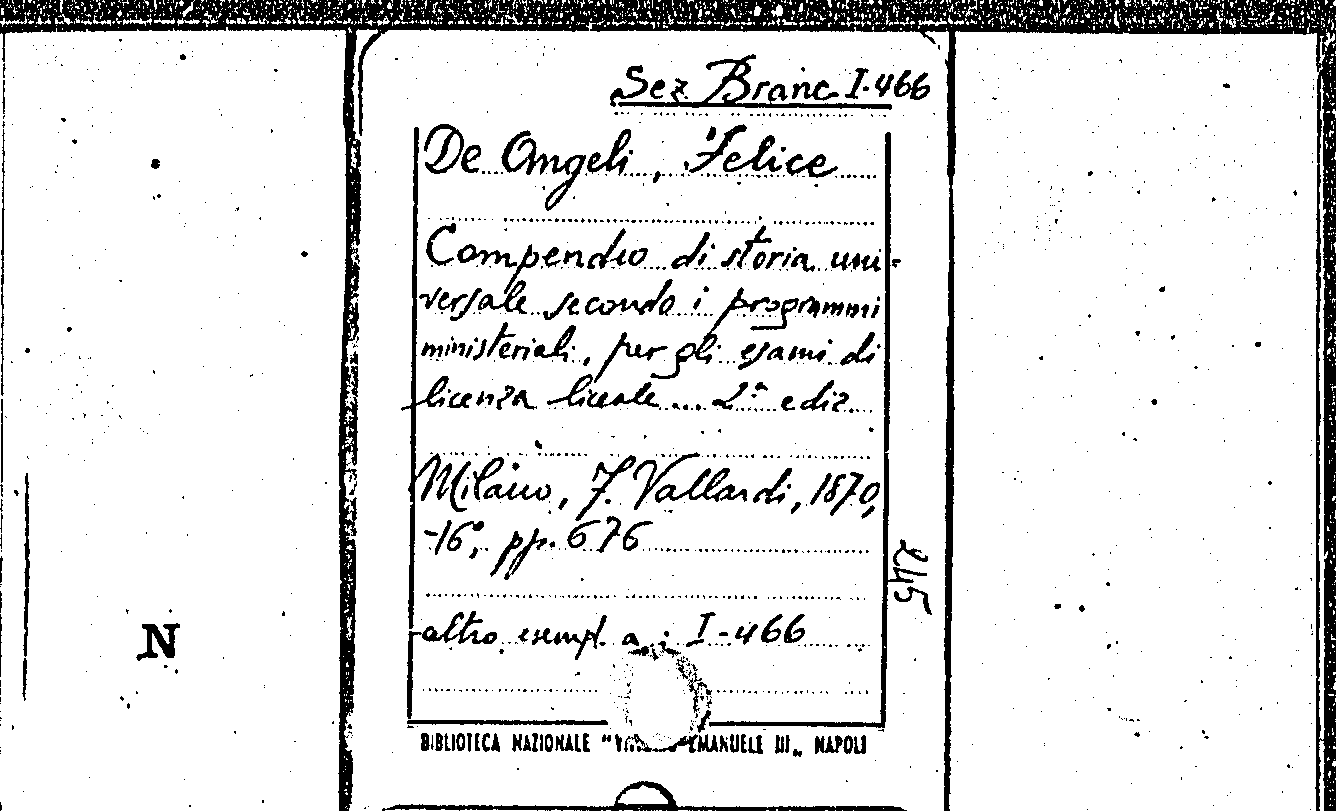 Sez. Branc. I-466
De Angeli, Felice
Compendio di storia uni-
versale secondo i programmi
ministeriali, per gli esami di
licenza liceale... 2ª ediz.
Milano, F. Vallardi, 1870,
-16°, pp. 676
245
altro esempl. a: I-466
N
BIBLIOTECA NAZIONALE " EMANUELE III„ NAPOLI